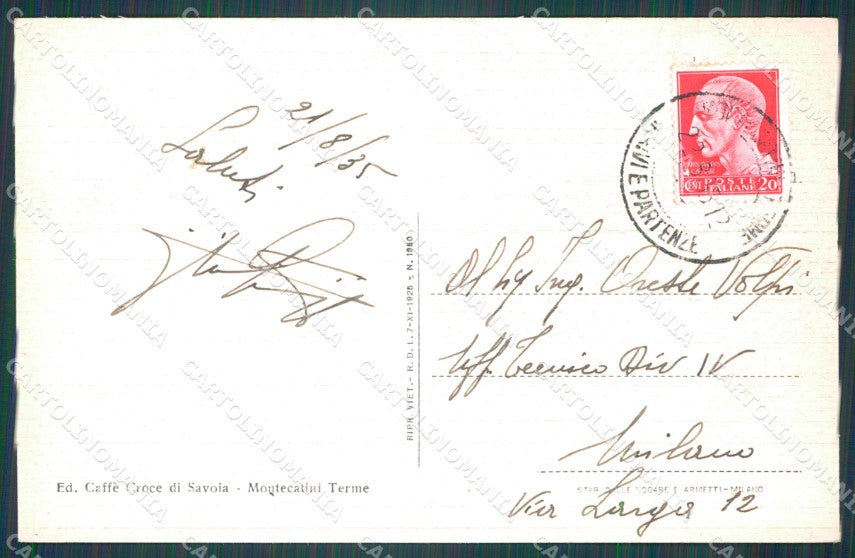 21/8/35
Saluti
RIPR. VIET. - R. D. L. 7-XI-1925 - N. 1950
Ed. Caffè Croce di Savoia - Montecatini Terme
POSTE
ITALIANE
CENT 20
ARRIVI E PARTENZE
Al Sig Ing. Oreste Volpi
Uff. Tecnico Div IV
Milano
ARMETTI - MILANO
Via Larga 12
CARTOLINOMANIA